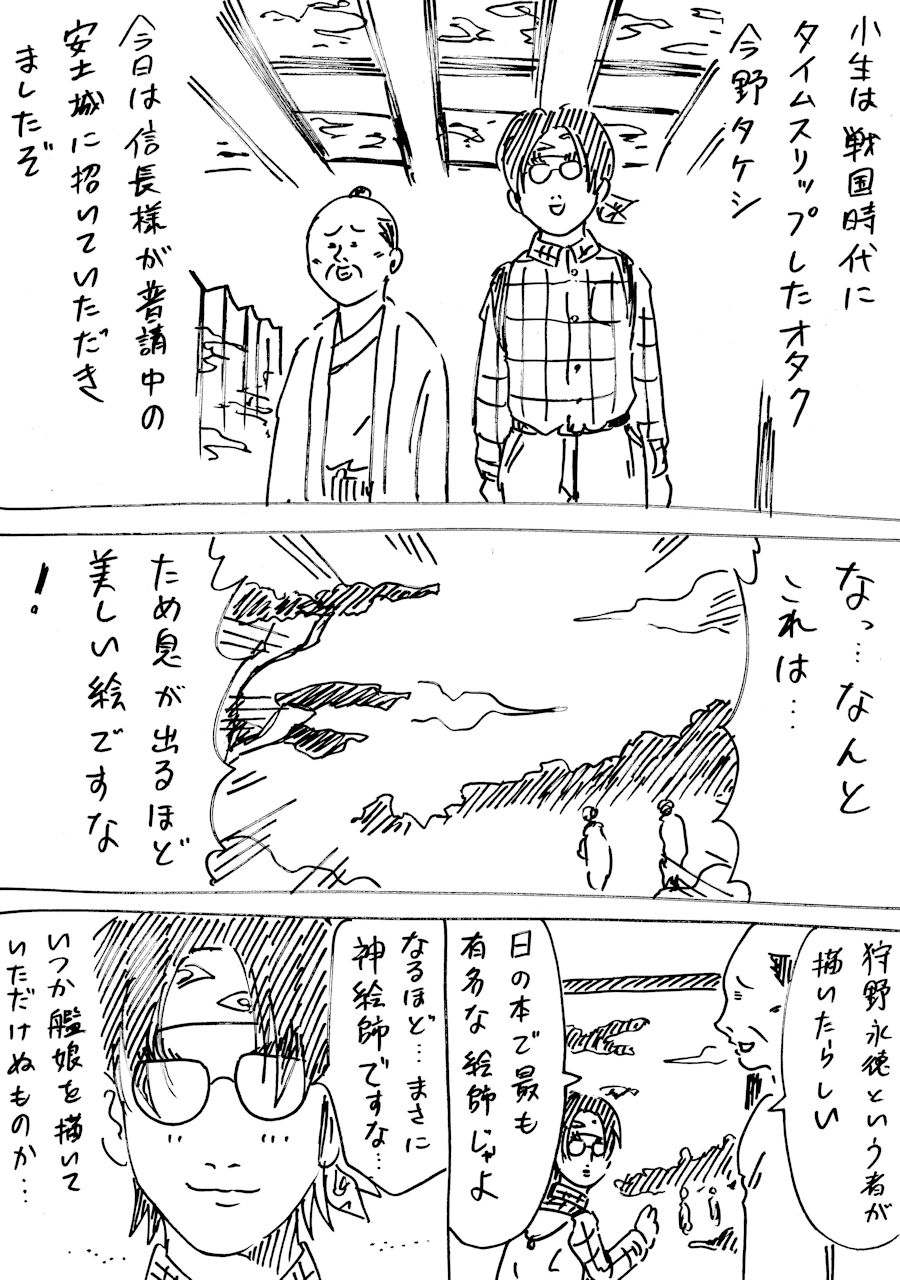 小生は戦国時代に
タイムスリップしたオタク
今野タケシ
今日は信長様が普請中の
安土城に招いていただき
ましたぞ
なっ…なんと
これは…
ため息が出るほど
美しい絵ですな
！
狩野永徳という者が
描いたらしい
日の本で最も
有名な絵師じゃよ
なるほど…まさに
神絵師ですな…
いつか艦娘を描いて
いただけぬものか…